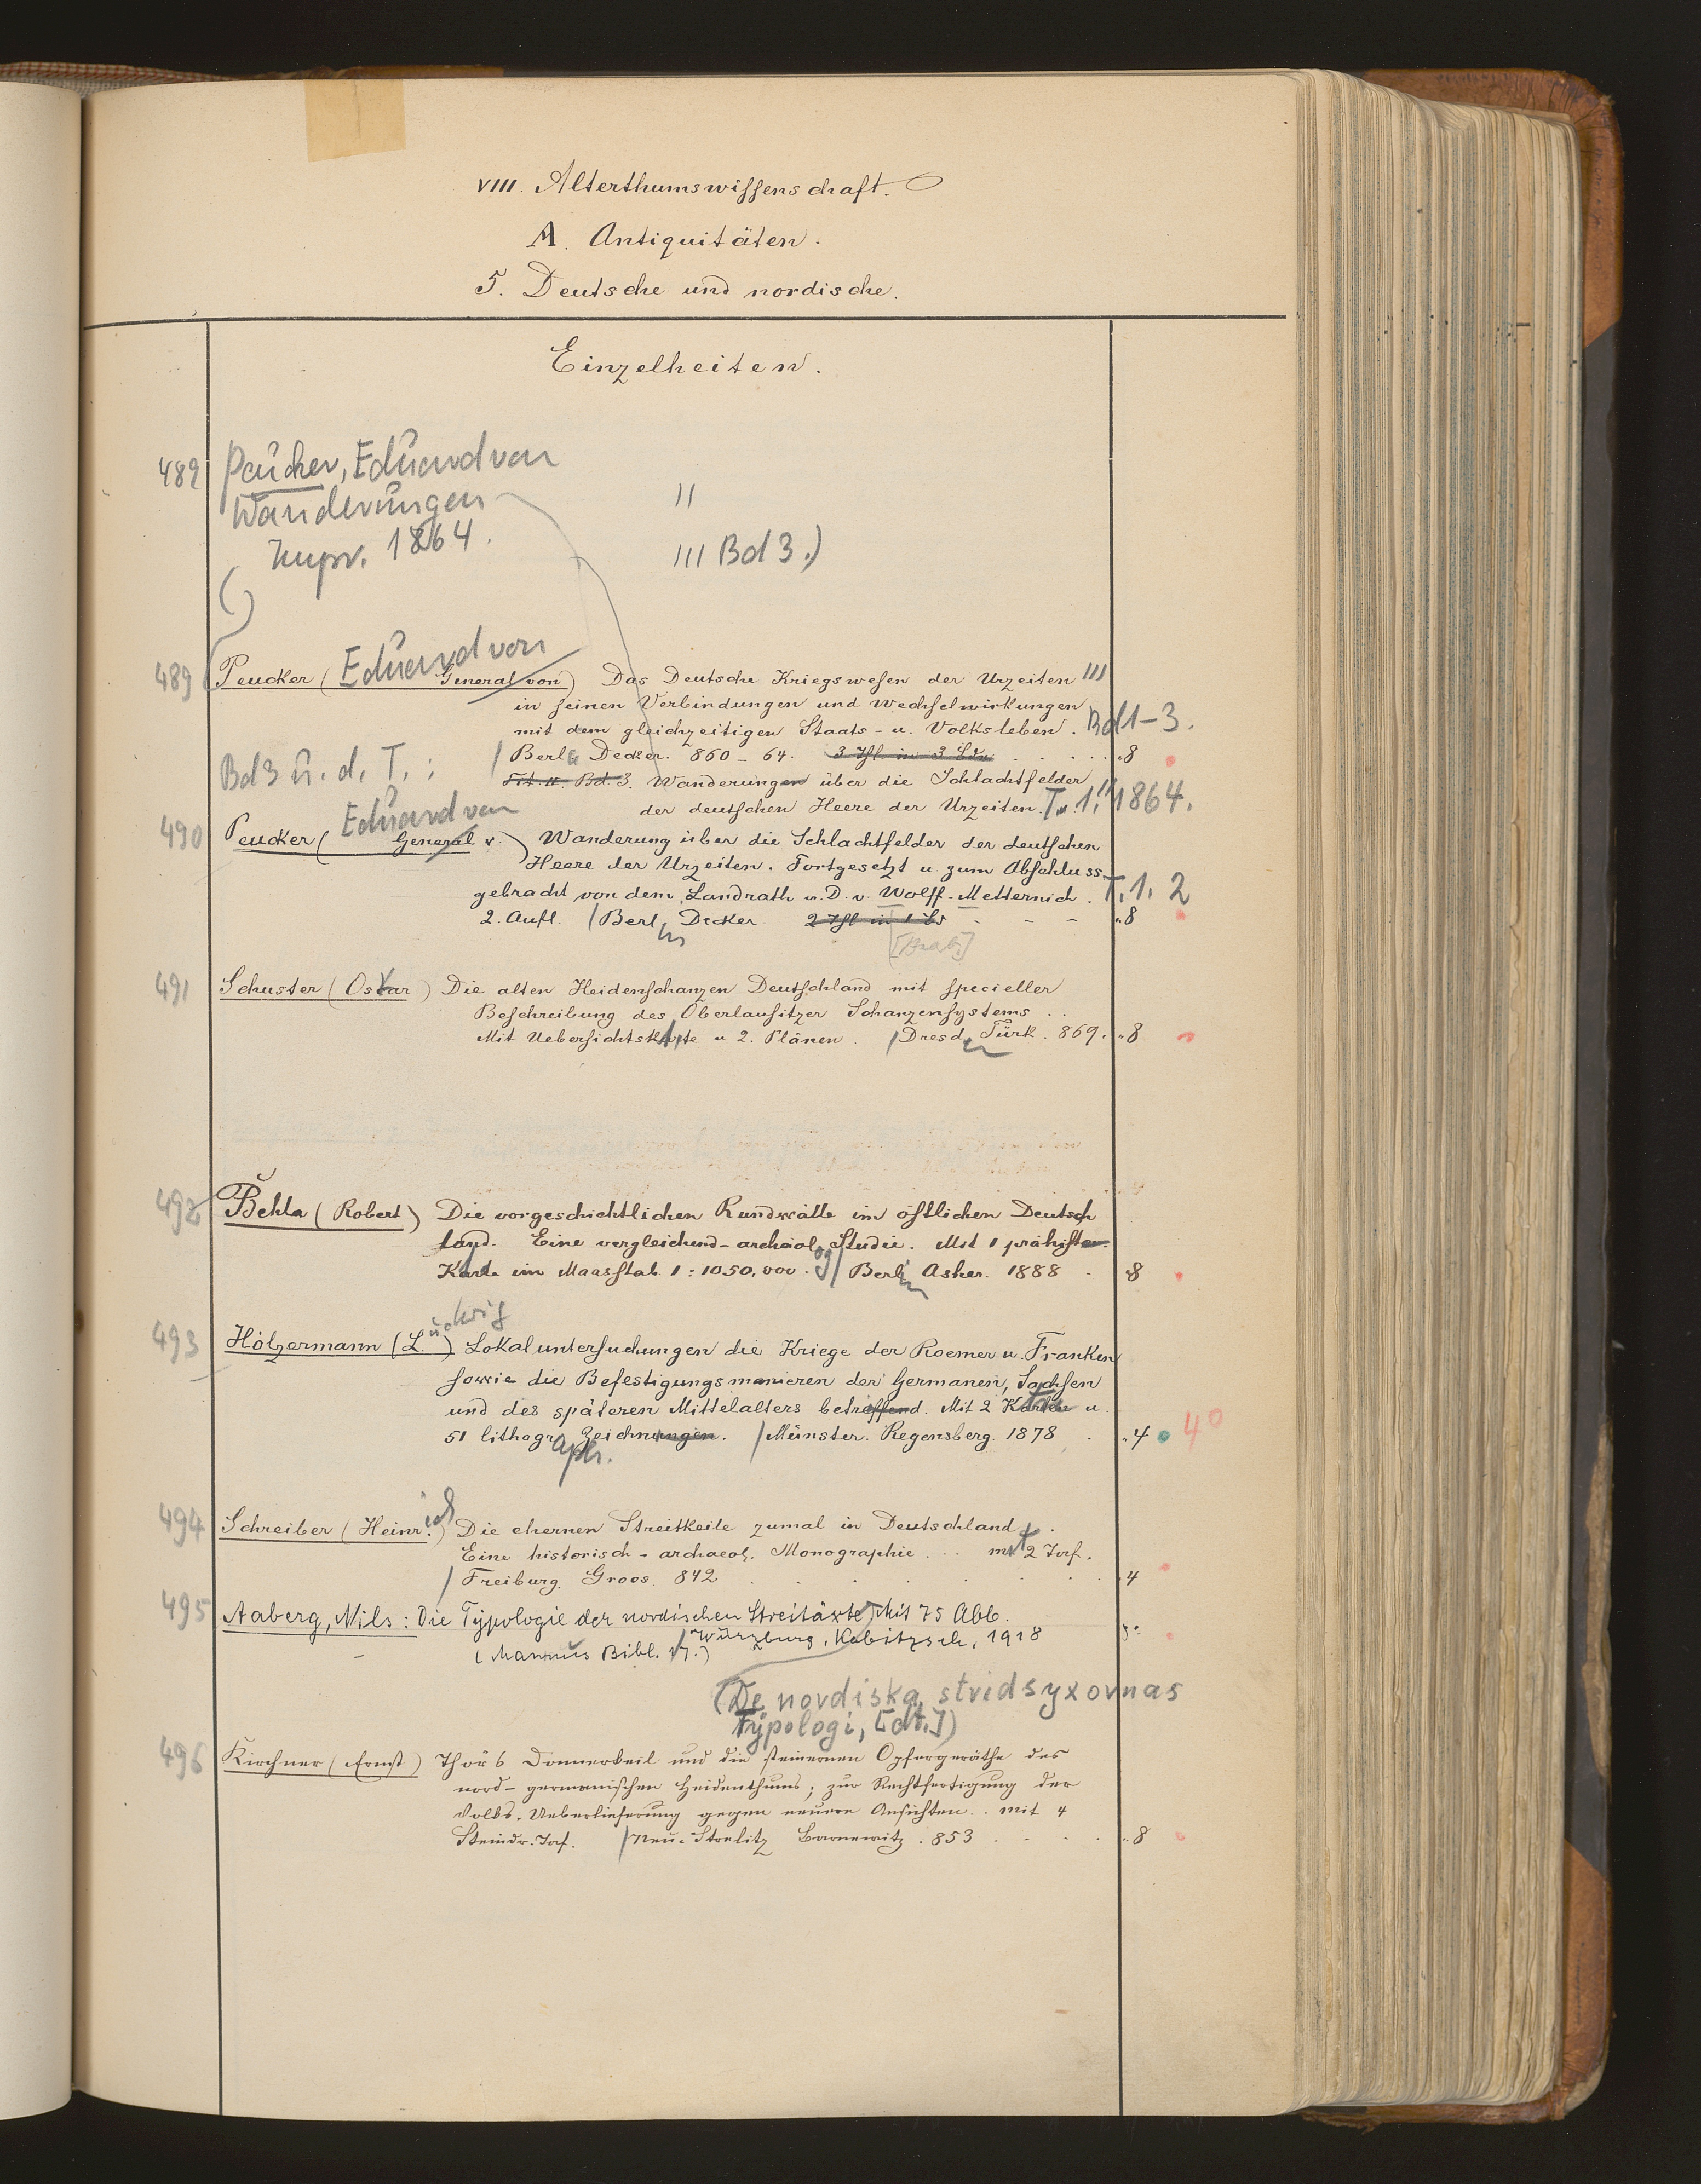 VIII. Alterthumswissenschaft.
A. Antiquitäten.
5. Deutsche und nordische.
Einzelheiten.
489 Peucker, Eduard von
Wanderungen "
Impr. 1864. III Bd 3.)
489 Peucker (General von) Eduard von Das Deutsche Kriegswesen der Urzeiten III
in seinen Verbindungen und Wechselwirkungen
mit dem gleichzeitigen Staats- u. Volksleben. Bd 1-3.
/ Berl. Decker. 860-64. 3 Thl in 3 Bdn "8
Bd 3 u. d. T. : Bd. 3. Wanderungen über die Schlachtfelder
der deutschen Heere der Urzeiten. T. 1." 1864.
490 Peucker (General v.) Eduard von Wanderung über die Schlachtfelder der deutschen
Heere der Urzeiten. Fortgesetzt u. zum Abschluss
gebracht von dem Landrath a. D. v. Wolff-Metternich. T. 1. 2
2. Aufl. / Berlin Decker. 2 Thl in 1 Bd "8
491 Schuster (Oskar) Die alten Heidenschanzen Deutschland mit specieller
Beschreibung des Oberlausitzer Schanzensystems
Mit Uebersichtskarte u 2. Plänen. / Dresden Türk. 869. "8
492 Behla (Robert) Die vorgeschichtlichen Rundwälle im östlichen Deutsch
land. Eine vergleichend-archäolog Studie. Mit 1 prähistor.
Karte im Maasstab. 1:1050,000. / Berlin Asher. 1888 "8
493 Hölzermann (Ludwig) Lokaluntersuchungen die Kriege der Roemer u. Franken
sowie die Befestigungsmanieren der Germanen, Sachsen
und des späteren Mittelalters betreffend. Mit 2 Karten u.
51 lithograph. Zeichnungen. / Münster. Regensberg. 1878 "4 4°
494 Schreiber (Heinrich) Die ehernen Streitkeile zumal in Deutschland.
Eine historisch-archaeol. Monographie. mit 2 Taf.
/ Freiburg. Groos 842 "4
495 Aaberg, Nils: Die Typologie der nordischen Streitäxte / Mit 75 Abb.
/ Würzburg, Kabitzsch, 1918 8°
(Mannus Bibl. 17.)
(De nordiska stridsyxornas
typologi, [dt.])
496 Kirchner (Ernst) Thôr's Donnerkeil und die steinernen Opfergeräthe des
nord-germanischen Heidenthums; zur Rechtfertigung der
Volks-Ueberlieferung gegen neuere Ansichten. mit 4
Steindr. Taf. / Neu-Strelitz Barnewitz. 853 "8